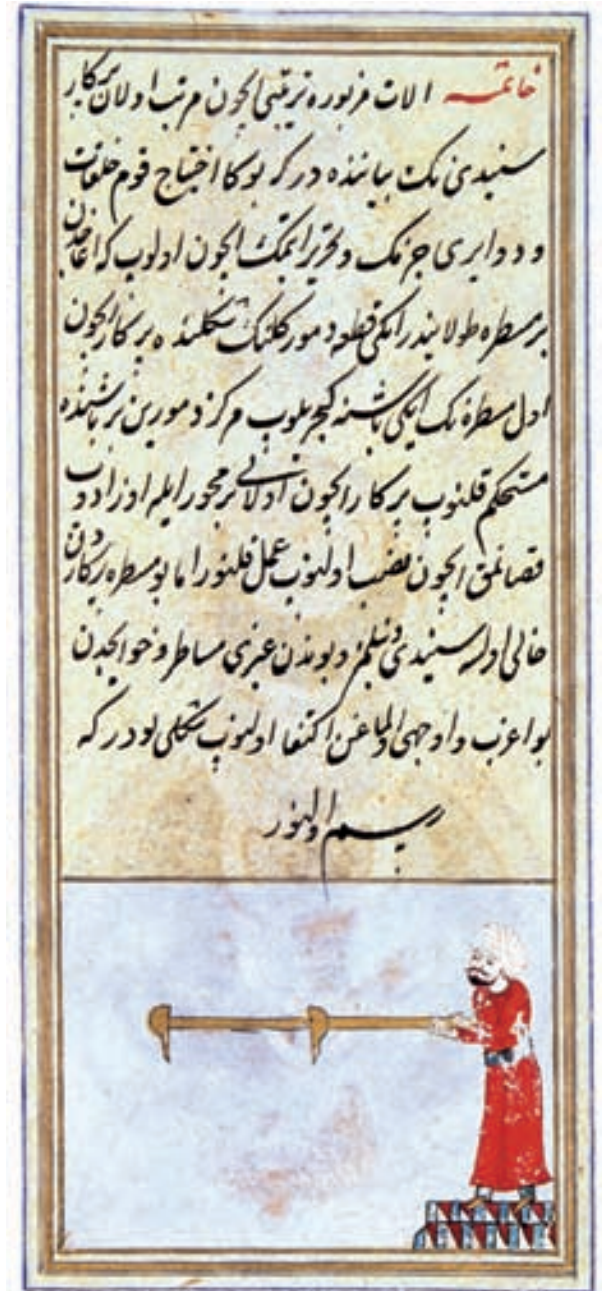 خاتمه الات مزبوره ترتیبی ایچون مرتب اولان پرکار
سنیدی نک بیاننده در که بوکا احتیاج قوم حلقات
و دوایری چزمک و تحریر ایتمک ایچون اولوب که اغاجدن
بر مسطره طولایندر ایکی قطعه دمور کلنک شکلنده پرکار ایچون
اول مسطره نک ایکی باشنه کچریلوب مرکز دمورین بر باشنده
مستحکم قلنوب پرکار ایچون اولانی بر محور ایله اوزادوب
قصالتمق ایچون نصب اولنوب عمل قلنور اما بو مسطره پرکاردن
خالی اولسه سنیدی دنیلمز و بوندن غیری مساطر و خوایجدن
بو اغرب و اوجهی اولماغن اکتفا اولنوب شکلی بودر که
رسم اولنور